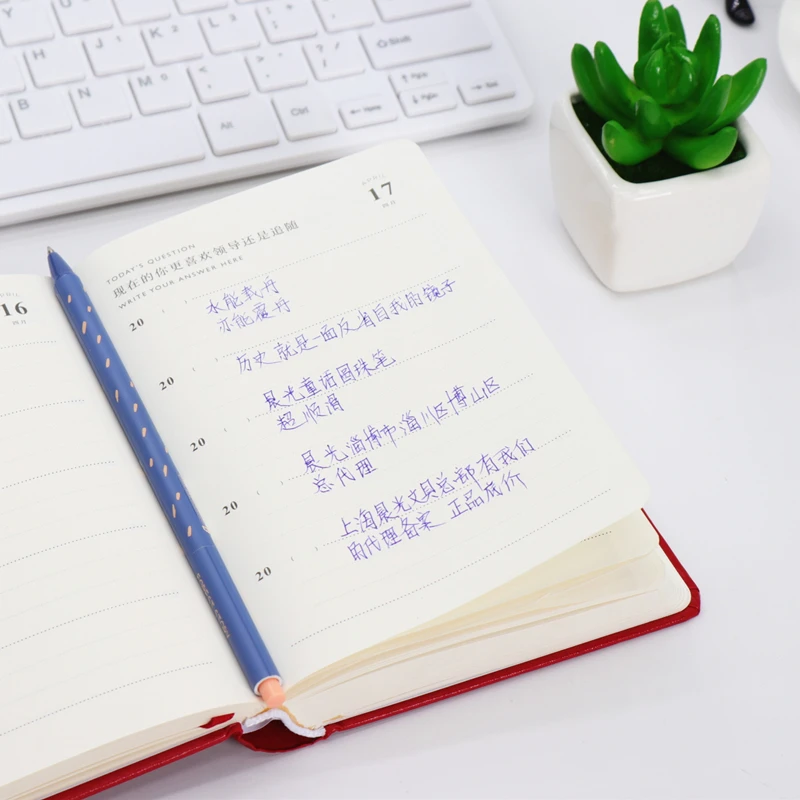 Y
U
I
O
P
H
J
K
L
B
N
M
Alt
Ctrl
Shift
Home
PgUp
PgDn
End
16
四月
APRIL
17
四月
TODAY'S QUESTION
现在的你更喜欢领导还是追随
WRITE YOUR ANSWER HERE
20
水能载舟
亦能覆舟
20
历史就是一面反省自我的镜子
20
晨光童话圆珠笔
超顺滑
20
晨光淄博市淄川区博山区
总代理
20
上海晨光文具总部有我们
的代理备案 正品底价